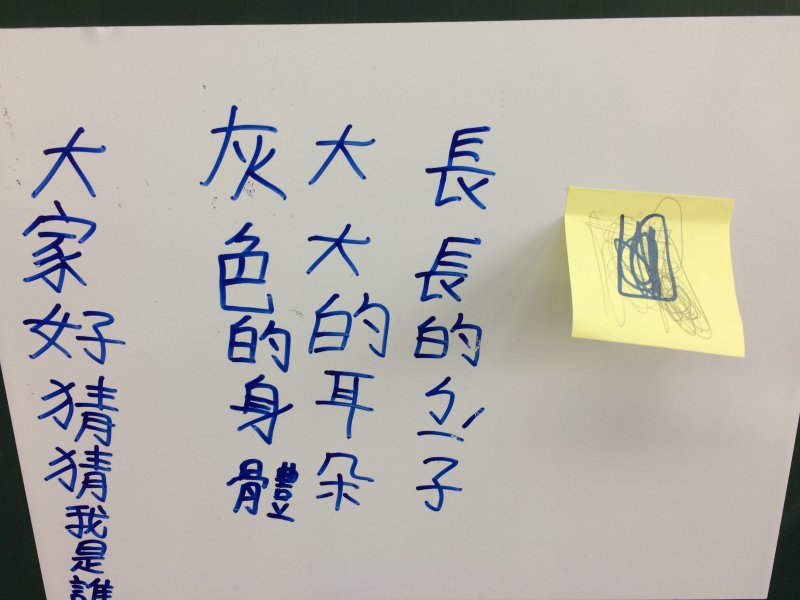 長長的ㄅㄧˊ子
大大的耳朵
灰色的身體
大家好猜猜我是誰